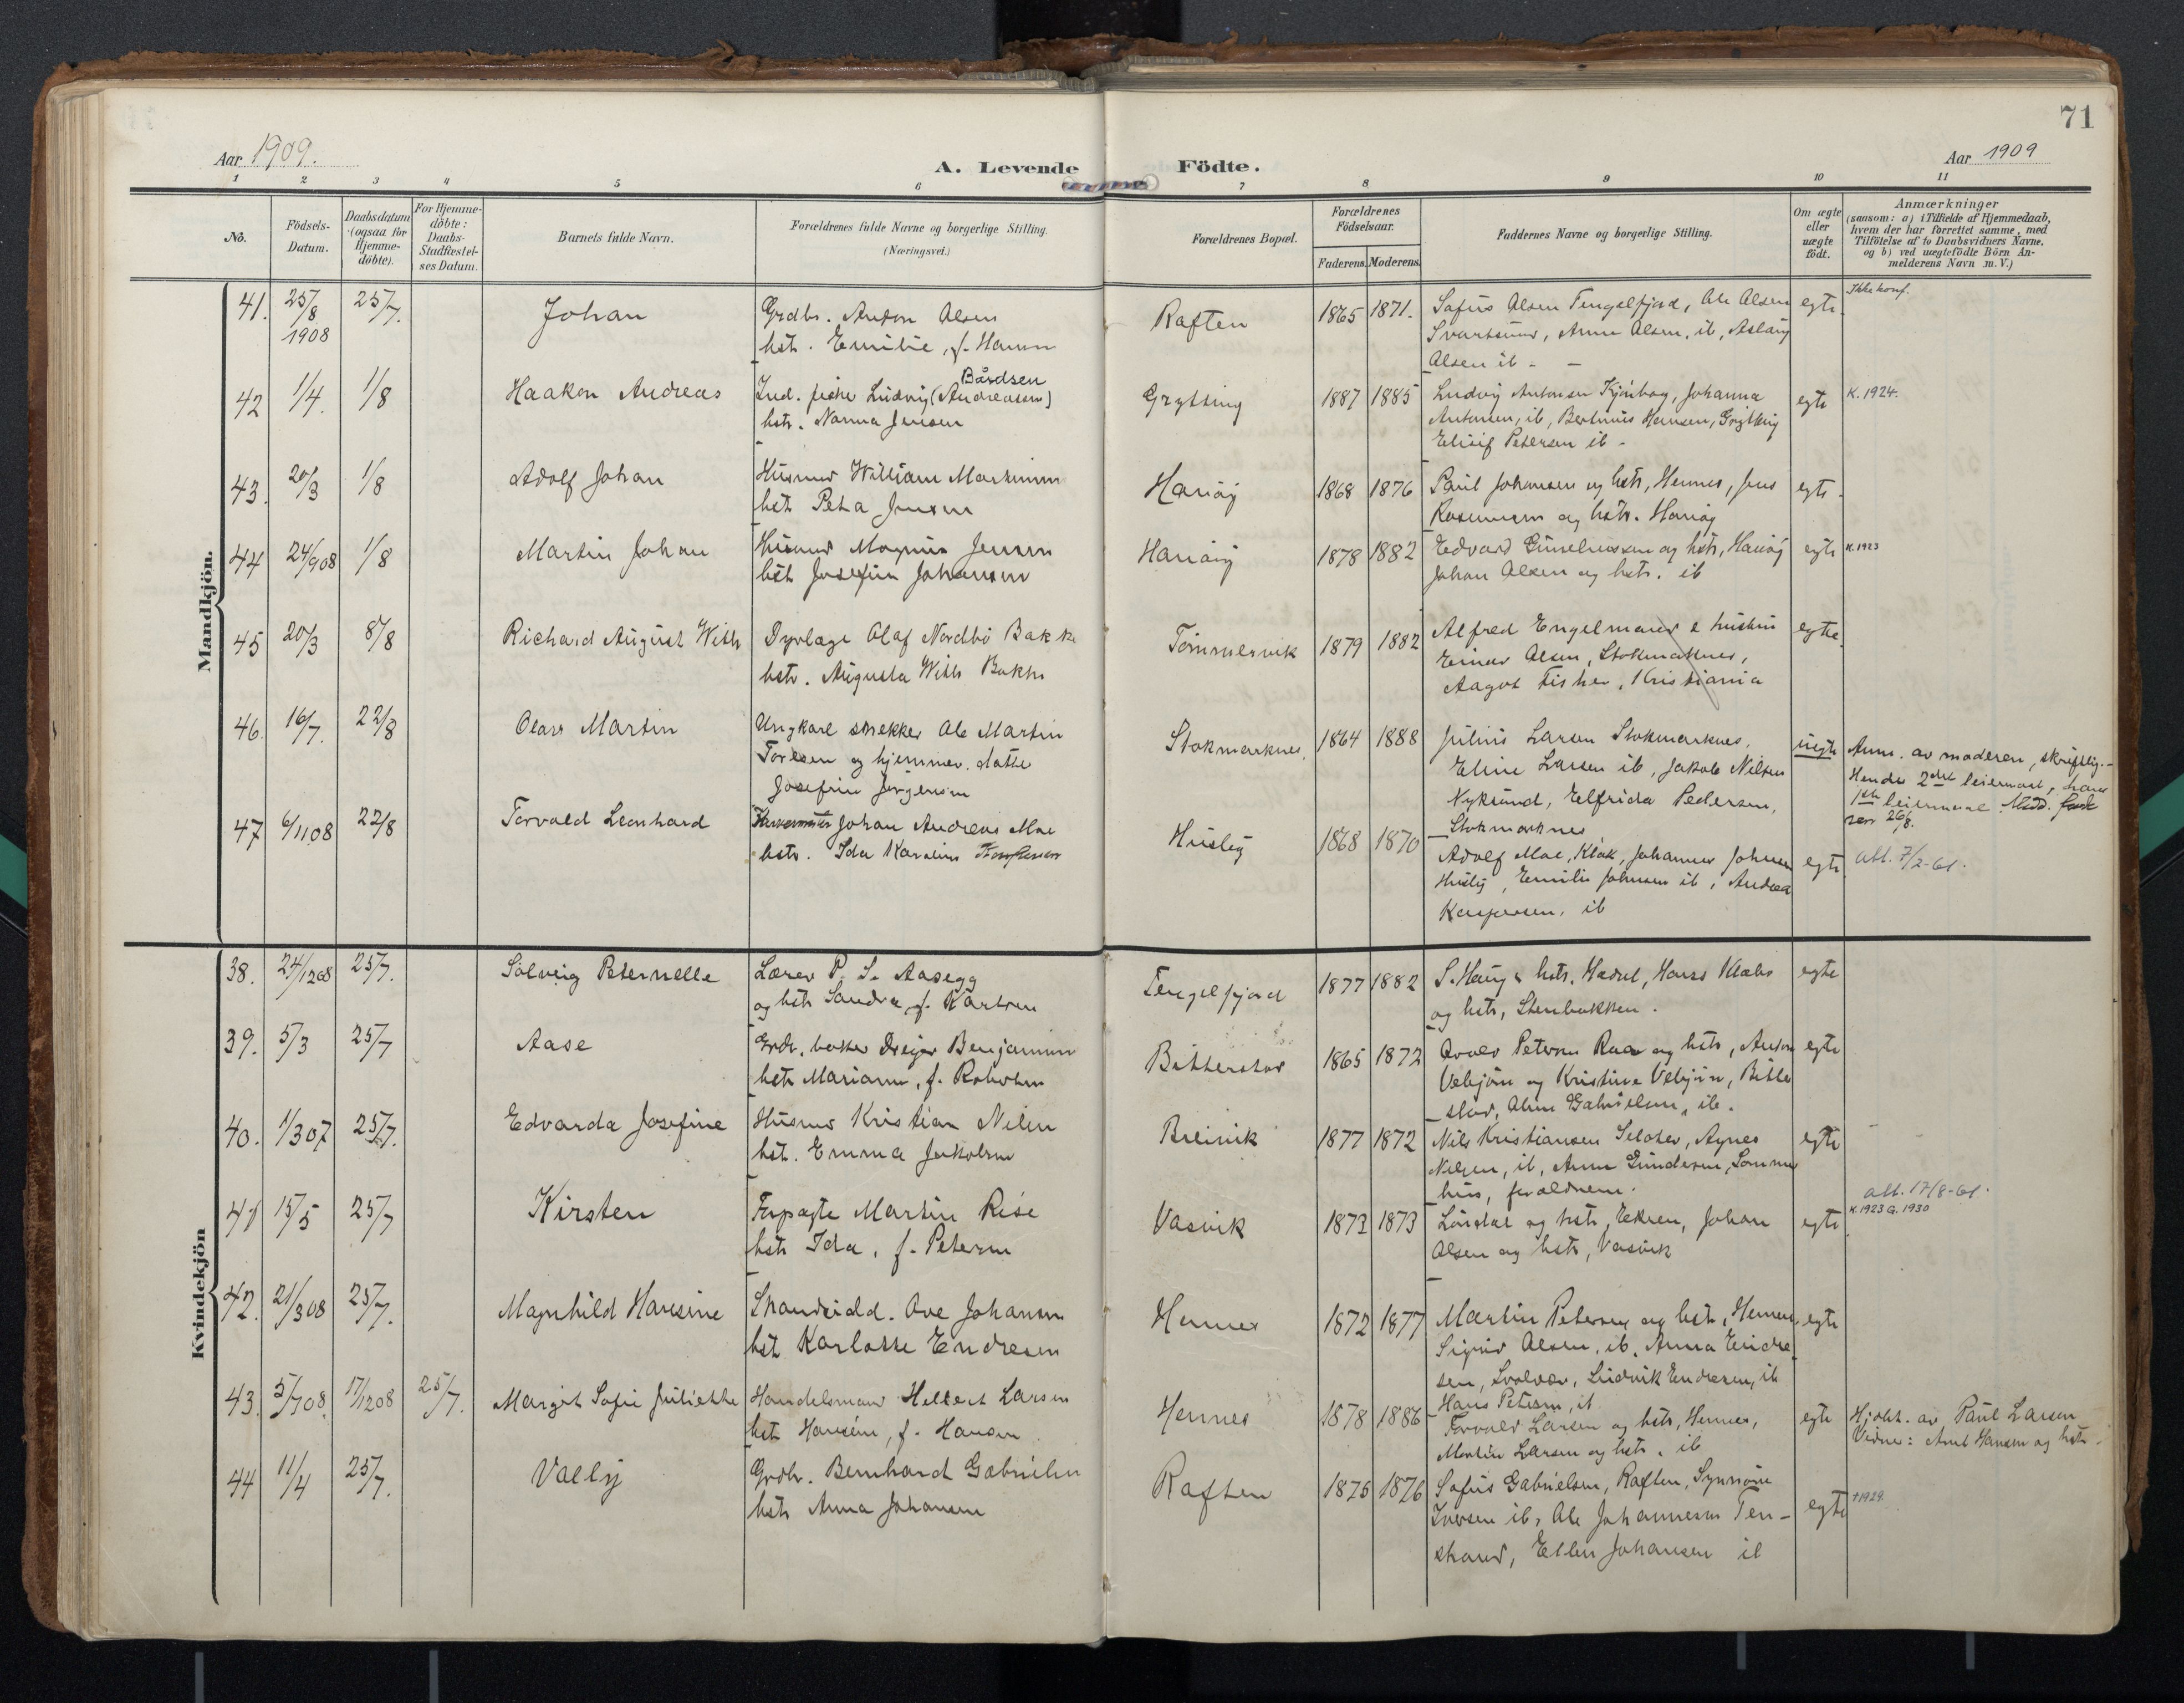 71
Aar 1909.
A. Levende Födte.
Aar 1909
1 2 3 4 5 6 7 8 9 10 11
No.
Födsels-
Datum.
Daabsdatum
(ogsaa for
Hjemme-
döbte).
For Hjemme-
döbte:
Daabs-
Stadfæstel-
ses Datum.
Barnets fulde Navn.
Forældrenes fulde Navne og borgerlige Stilling.
(Næringsvei.)
Forældrenes Bopæl.
Forældrenes
Födselsaar.
Faderens. Moderens.
Faddernes Navne og borgerlige Stilling.
Om ægte
eller
uægte
födt.
Anmærkninger
(saasom: a) i Tilfælde af Hjemmedaab,
hvem der har forrettet samme, med
Tilföielse af to Daabsvidners Navne,
og b) ved uægtefödte Börn An-
melderens Navn m. V.)
Mandkjön.
41. 25/8 1908 25/7. Johan
Grdbr. Anton Olsen
hstr. Emilie, f. Hansen
Raften 1865 1871.
Sofus Olsen Tengelfjord, Ole Olsen
Svartsund, Anne Olsen, ib, Aslaug
Olsen ib -
egte.
Ikke konf.
42 1/4. 1/8 Haakon Andreas
Bårdsen
Ind. fisker Ludvig (Andreassen)
hstr. Nanna Jensen
Grytting 1887 1885
Ludvig Antonsen Kjönbog, Johanna
Antonsen, ib, Bertinus Hansen, Grytting
Petersen ib -
egte
K. 1924.
43. 20/3 1/8 Adolf Johan
Husmd William Martinsen
hstr Petra Jensen
Hanöy 1868 1876
Paul Johansen og hstr, Hennes, Jens
Rasmussen og hstr. Hanöy
egte -
44 24/908 1/8 Martin Johan
Husmd Magnus Jensen
hstr Josefine Johansen
Hanöy 1878 1882
Edvard og hstr, Hanöy
Johan Olsen og hstr. ib
egte
K. 1923
45 20/3 8/8 Richard August With
Dyrlæge Olaf Nordbö Bakke
hstr. Augusta With Bakke
Tömmervik 1879 1882
Alfred Engelmand & hustru
Einar Olsen, Stokmarknes,
Aagot Fisher, Kristiania
egte.
46. 16/7. 22/8 Olav Martin
Ungkarl snekker Ole Martin
Toresen og hjemmev. datter
Josefine Jörgensen
Stokmarknes. 1864 1888
Julius Larsen Stokmarknes,
Eline Larsen ib, Jakob Nilsen
Nyksund, Elfrida Pedersen,
Stokmarknes
uegte
Anm. av moderen, skriftlig. -
Hendes 2det leiermaal, hans
1ste leiermaal. Medd.
26/8.
47 6/1108 22/8 Torvald Leonhard
Johan Andreas Moe
hstr. Ida Karoline
Husby 1868 1870
Adolf Moe, Klak, Johannes Johnsen
Husby, Emilie Johnsen ib, Andrea
Kaspersen, ib
egte.
att. 7/2-61.
Kvindekjön
38. 24/1208 25/7. Solveig Peternelle
Lærer P. S. Aasegg
og hstr Sandra, f. Karlsen
Tengelfjord 1877 1882
S. Haug & hstr. Hadsel, Hans Klæbo
og hstr, Stenbakken.
egte
39. 5/3 25/7 Aase
Grdbr. Benjaminsen
hstr Marianne, f.
Bitterstad 1865 1872
Petersen og hstr, Anton
Vebjörn og Kristine Vebjörn, Bitter
stad, Gabrielsen, ib.
egte
40. 1/307 25/7. Edvarda Josefine
Husmd Kristian Nilsen
hstr. Emma Jakobsen
Breivik 1877 1872
Nils Kristiansen Selater, Agnes
Nilsen, ib, Anna Gundersen, Sommer
hus, forældrene.
egte
41 15/5 25/7 Kirsten
Forpagter Martin Riise
hstr Ida, f. Petersen
Vasvik 1873 1873
Löndal og hstr, Ekren, Johan
Olsen og hstr, Vasvik
egte
att. 17/8-61.
K. 1923 G. 1930
42. 21/308 25/7. Magnhild Hansine
Strandsidd. Ove Johansen
hstr Karlotte Endresen
Hennes 1872 1877
Martin Petersen og hstr, Hennes,
Sigurd Olsen, ib, Anna Endre
sen, Svolvær, Ludvik Endresen, ib
Hans Petersen, ib
egte
43. 5/708. 17/1208 25/7. Margit Sofie Juliette
Handelsmand Helbert Larsen
hstr Hansine, f. Hansen
Hennes 1878 1886
Torvald Larsen og hstr, Hennes,
Martin Larsen og hstr. ib
egte
Hjdbt. av Paul Larsen
Vidne: Arnt Hansen og hstr.
44 11/4 25/7. Vally
Grdbr. Bernhard Gabrielsen
hstr Anna Johansen
Raften 1875 1876
Sofus Gabrielsen, Raften, Synnöve
Iversen ib, Ole Johannesen Ten-
strand, Ellen Johansen ib
egte
†1929.